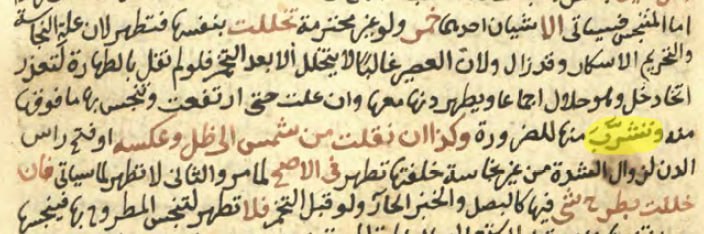 اما المتنجس فسياتى الا شيان احدهما خمر ولو غير محترمة تخللت بنفسها فتطهر لان علة النجاسة
والتحريم الاسكار وقد زال ولان العصير غالبا لا يتخلل الا بعد التخمر فلو لم نقل بالطهارة لتعذر
اتخاذ خل وهو حلال اجماعا ويطهر دنها معها وان غلت حتى ارتفعت وتنجس بها ما فوقها
منه وتشرب منها للضرورة وكذا ان نقلت من شمس الى ظل وعكسه او فتح راس
الدن لزوال الشدة من غير نجاسة خلفتها تطهر فى الاصح لما مر والثانى لا تطهر لما سياتى فان
خللت بطرح شئ فيها كالبصل والخبز الحار ولو قبل التخمر فلا تطهر لتنجس المطروح بها فينجسها